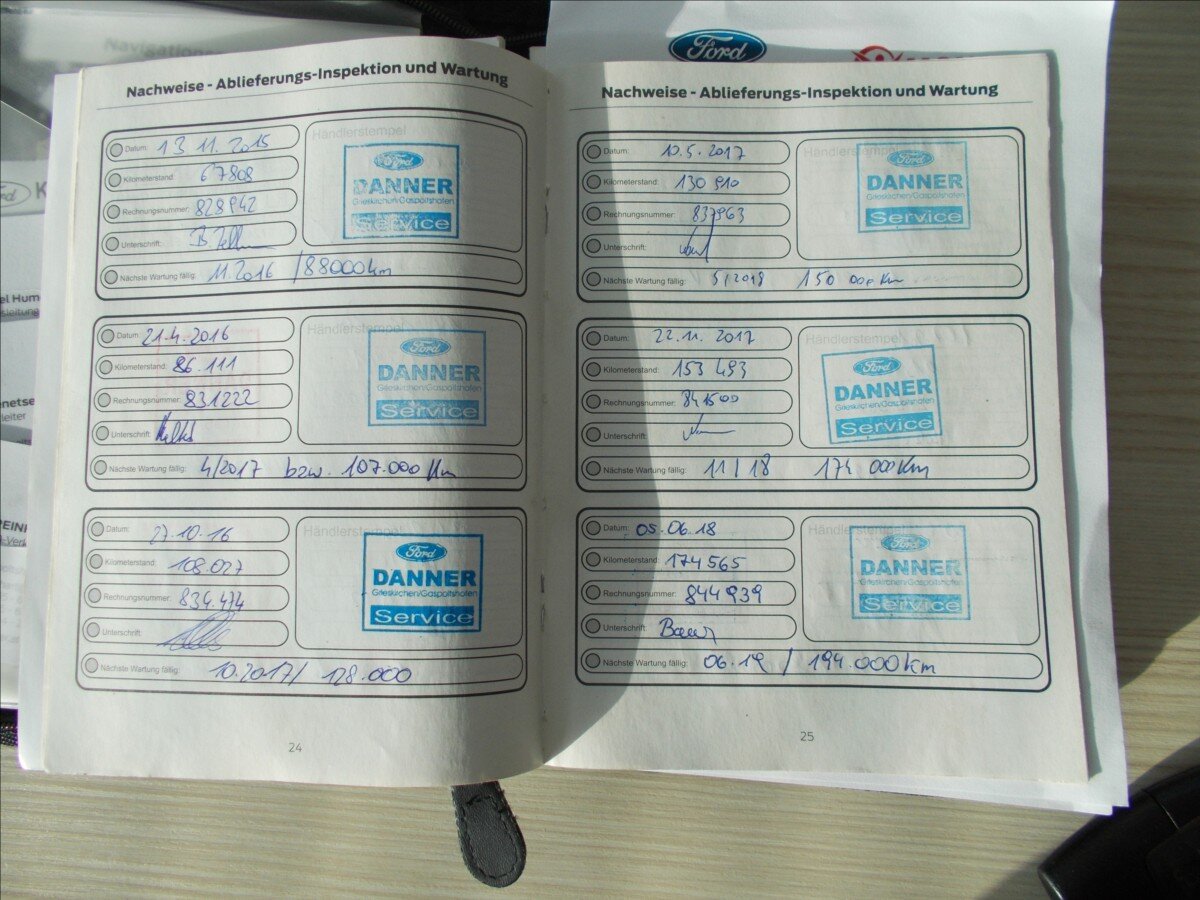 Navigations
Ford
Nachweise - Ablieferungs-Inspektion und Wartung
Datum: 13 11. 2015
Kilometerstand: 67808
Rechnungsnummer: 828942
Unterschrift:
Nächste Wartung fällig: 11.2016 /88000km
Händlerstempel
Ford
DANNER
Grieskirchen/Gaspoltshofen
Service
Datum: 21.4.2016
Kilometerstand: 86.111
Rechnungsnummer: 831222
Unterschrift:
Nächste Wartung fällig: 4/2017 bzw. 107.000 Km
Händlerstempel
Ford
DANNER
Grieskirchen/Gaspoltshofen
Service
Datum: 27.10.16
Kilometerstand: 108.027
Rechnungsnummer: 834.474
Unterschrift:
Nächste Wartung fällig: 10.2017/ 128.000
Händlerstempel
Ford
DANNER
Grieskirchen/Gaspoltshofen
Service
24
Nachweise - Ablieferungs-Inspektion und Wartung
Datum: 10.5.2017
Kilometerstand: 130 910
Rechnungsnummer: 837963
Unterschrift:
Nächste Wartung fällig: 5/2018 150 000 Km
Händlerstempel
Ford
DANNER
Grieskirchen/Gaspoltshofen
Service
Datum: 22.11. 2017
Kilometerstand: 153 493
Rechnungsnummer: 841500
Unterschrift:
Nächste Wartung fällig: 11/18 174 000Km
Händlerstempel
Ford
DANNER
Grieskirchen/Gaspoltshofen
Service
Datum: 05.06.18
Kilometerstand: 174565
Rechnungsnummer: 844939
Unterschrift:
Nächste Wartung fällig: 06.19 / 194.000km
Händlerstempel
Ford
DANNER
Grieskirchen/Gaspoltshofen
Service
25